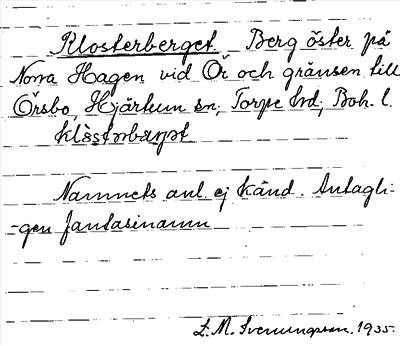 Klosterberget Berg öster på
Norra Hagen vid Ör och gränsen till
Örsbo, Hjärtum sn, Torpe hd, Boh. l.
klòstərbæ̀rjət
Namnets anl. ej känd. Antagli-
-gen fantasinamn
E. M. Svenungsson. 1935.